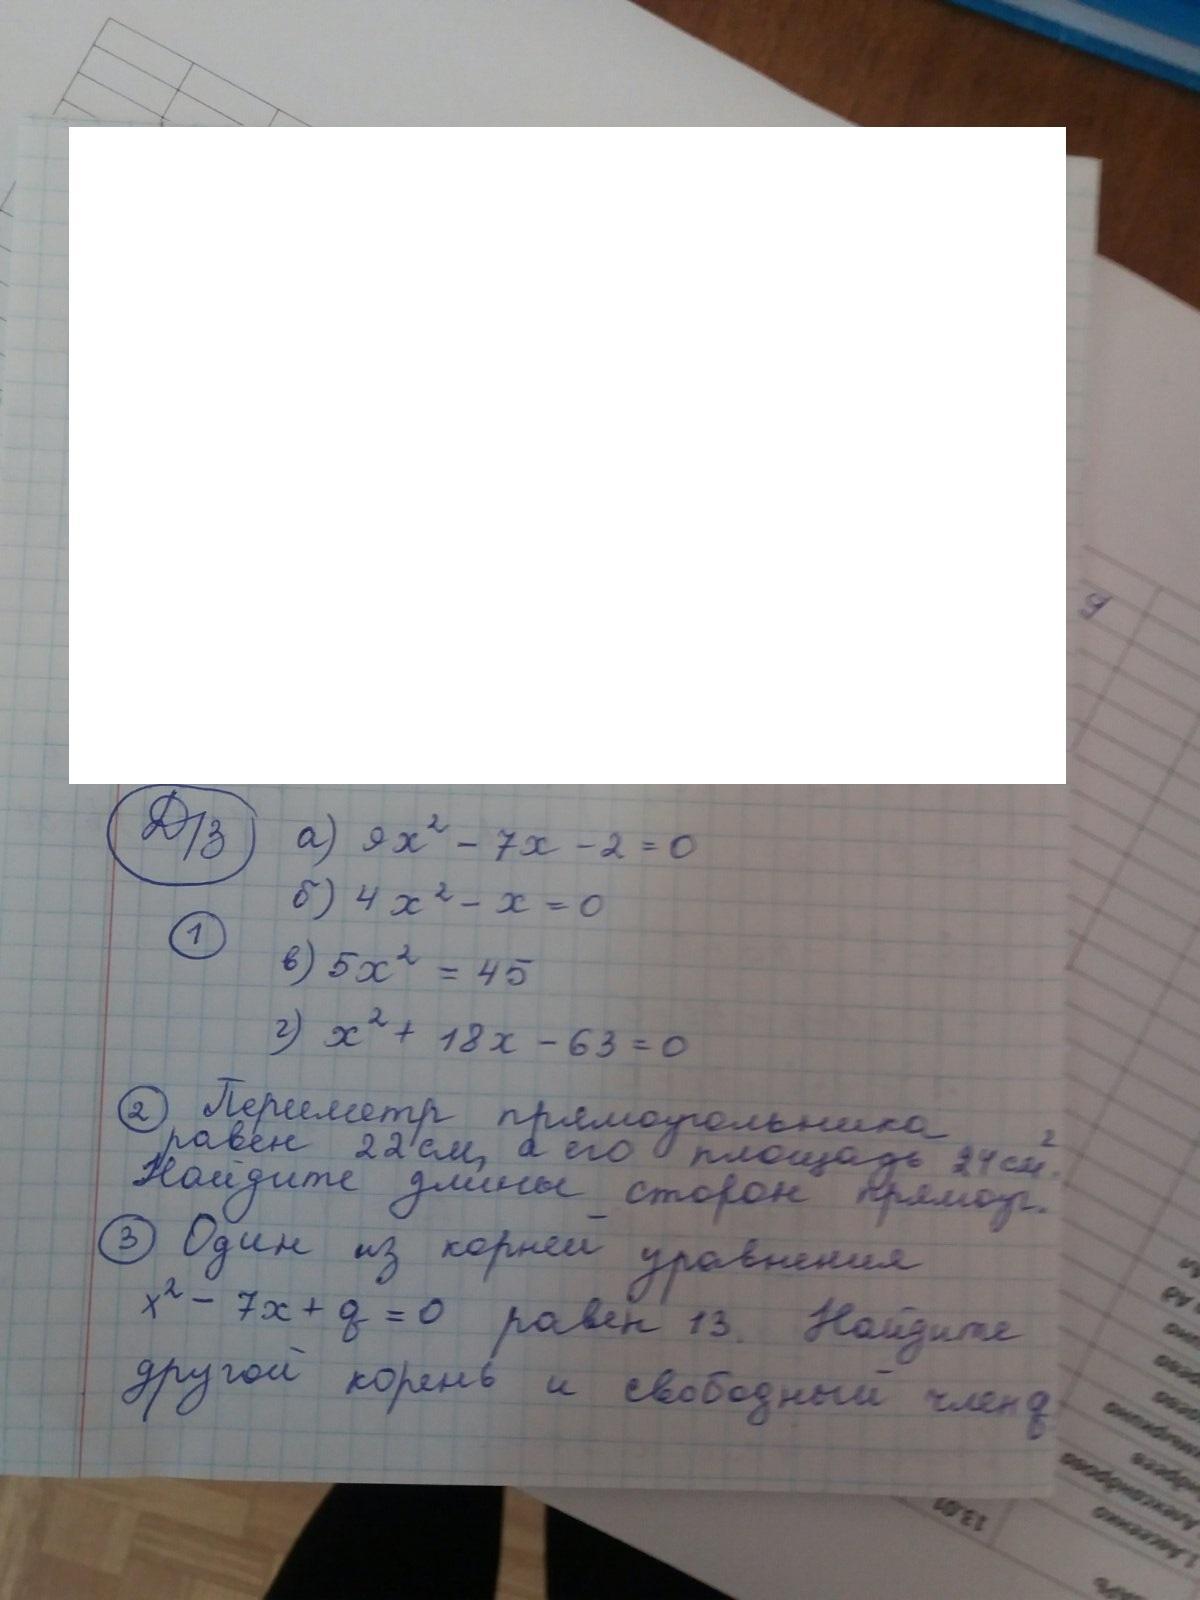 Д/з
а) 9x² - 7x - 2 = 0
б) 4x² - x = 0
1
в) 5x² = 45
г) x² + 18x - 63 = 0
2 Периметр прямоугольника
равен 22 см, а его площадь 24 см².
Найдите длины сторон прямоуг.
3 Один из корней уравнения
x² - 7x + q = 0 равен 13. Найдите
другой корень и свободный член q
13.01